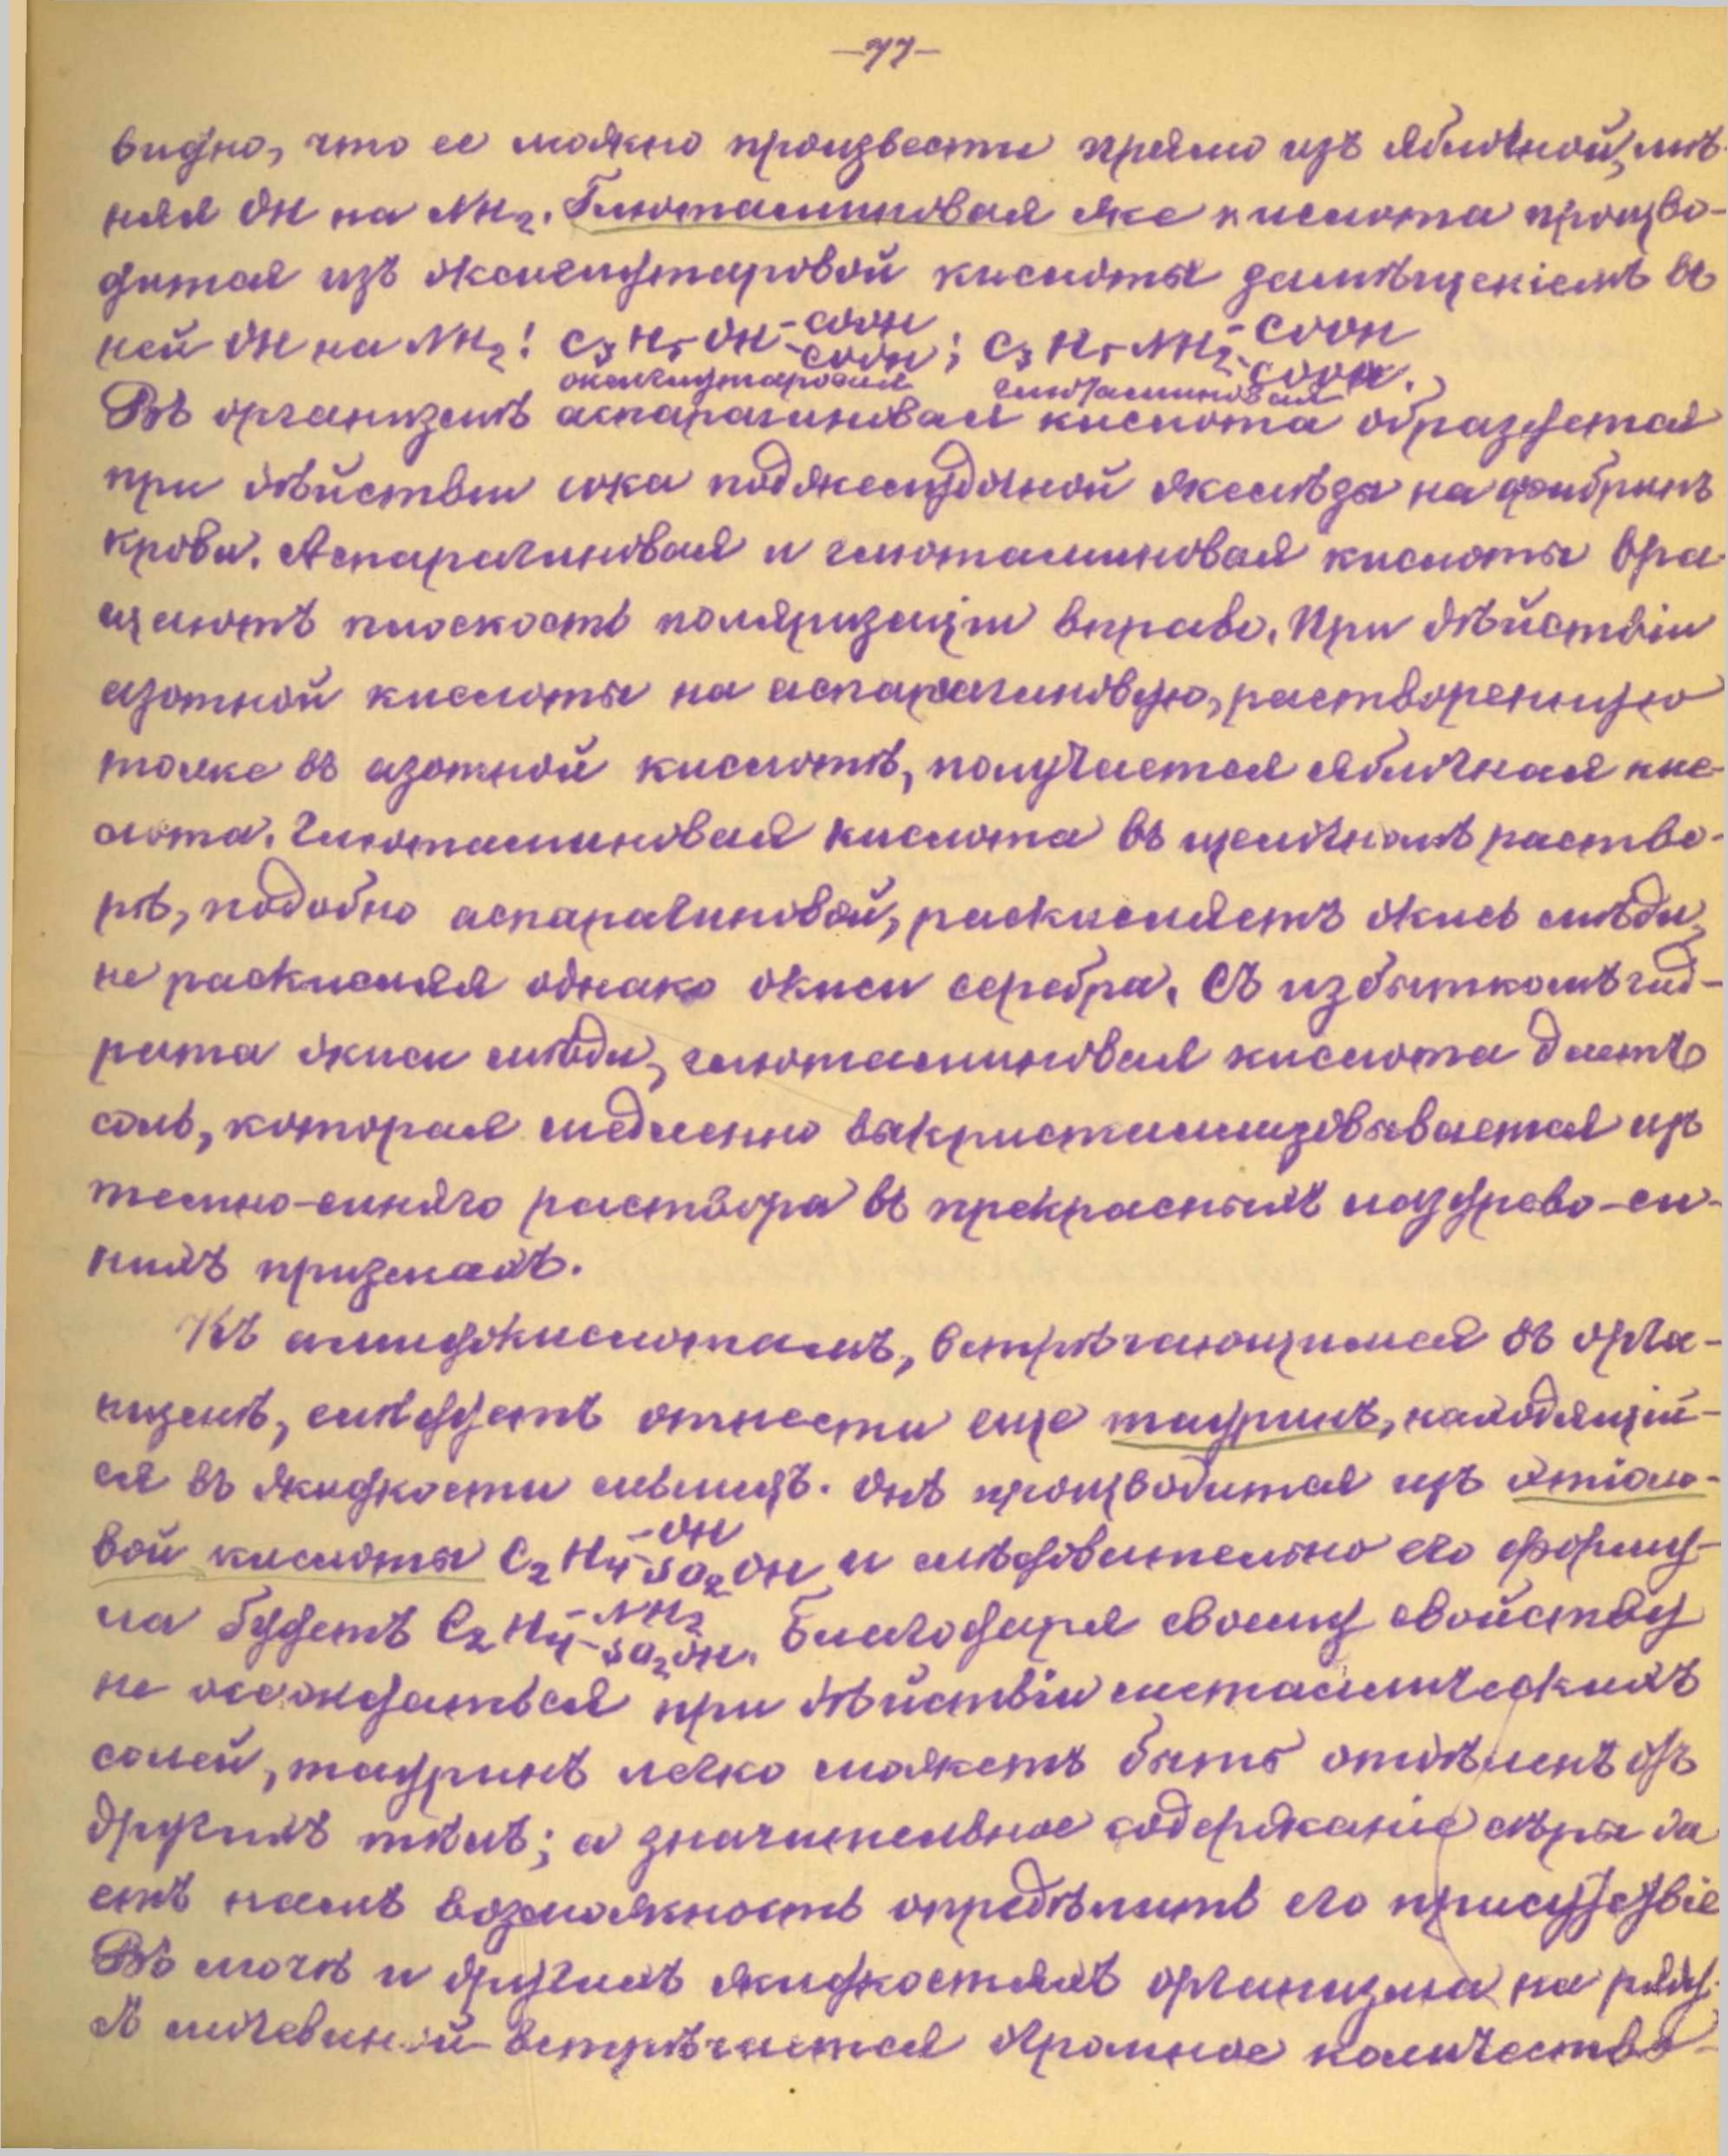 -77-
видно, что ее можно произвести прямо изъ яблочной, мѣ-
няя OH на NH2. Глютаминовая же кислота произво-
дится изъ оксиглутаровой кислоты замѣщеніемъ въ
ней OH на NH2: C3H5OH-COOH-COOH; C3H5NH2-COOH-COOH.
оксиглутаровая глютаминовая
Въ организмѣ аспарагиновая кислота образуется
при дѣйствіи сока поджелудочной желѣзы на фибринъ
крови. Аспарагиновая и глютаминовая кислоты вра-
щаютъ плоскость поляризаціи вправо. При дѣйствіи
азотной кислоты на аспарагиновую, растворенную
тоже въ азотной кислотѣ, получается яблочная кис-
лота. Глютаминовая кислота въ щелочномъ раство-
рѣ, подобно аспарагиновой, раскисляетъ окись мѣди,
не раскисляя однако окиси серебра. Съ избыткомъ гид-
рата окиси мѣди, глютаминовая кислота даетъ
соль, которая медленно выкристаллизовывается изъ
темно-синяго раствора въ прекрасныхъ лазурево-си-
нихъ призмахъ.
Къ амидокислотамъ, встрѣчающимся въ орга-
низмѣ, слѣдуетъ отнести еще тауринъ, находящій-
ся въ жидкости мышцъ. Онъ производится изъ этіоло-
вой кислоты C2H4-OH-SO2OH и слѣдовательно его форму-
ла будетъ C2H4-NH2-SO2OH. Благодаря своему свойству
не осаждаться при дѣйствіи металлическихъ
солей, тауринъ легко можетъ быть отдѣленъ отъ
другихъ тѣлъ; а значительное содержаніе сѣры да
етъ намъ возможность опредѣлить его присутствіе
Въ мочѣ и другихъ жидкостяхъ организма на ряду
съ мочевиной встрѣчается огромное количество